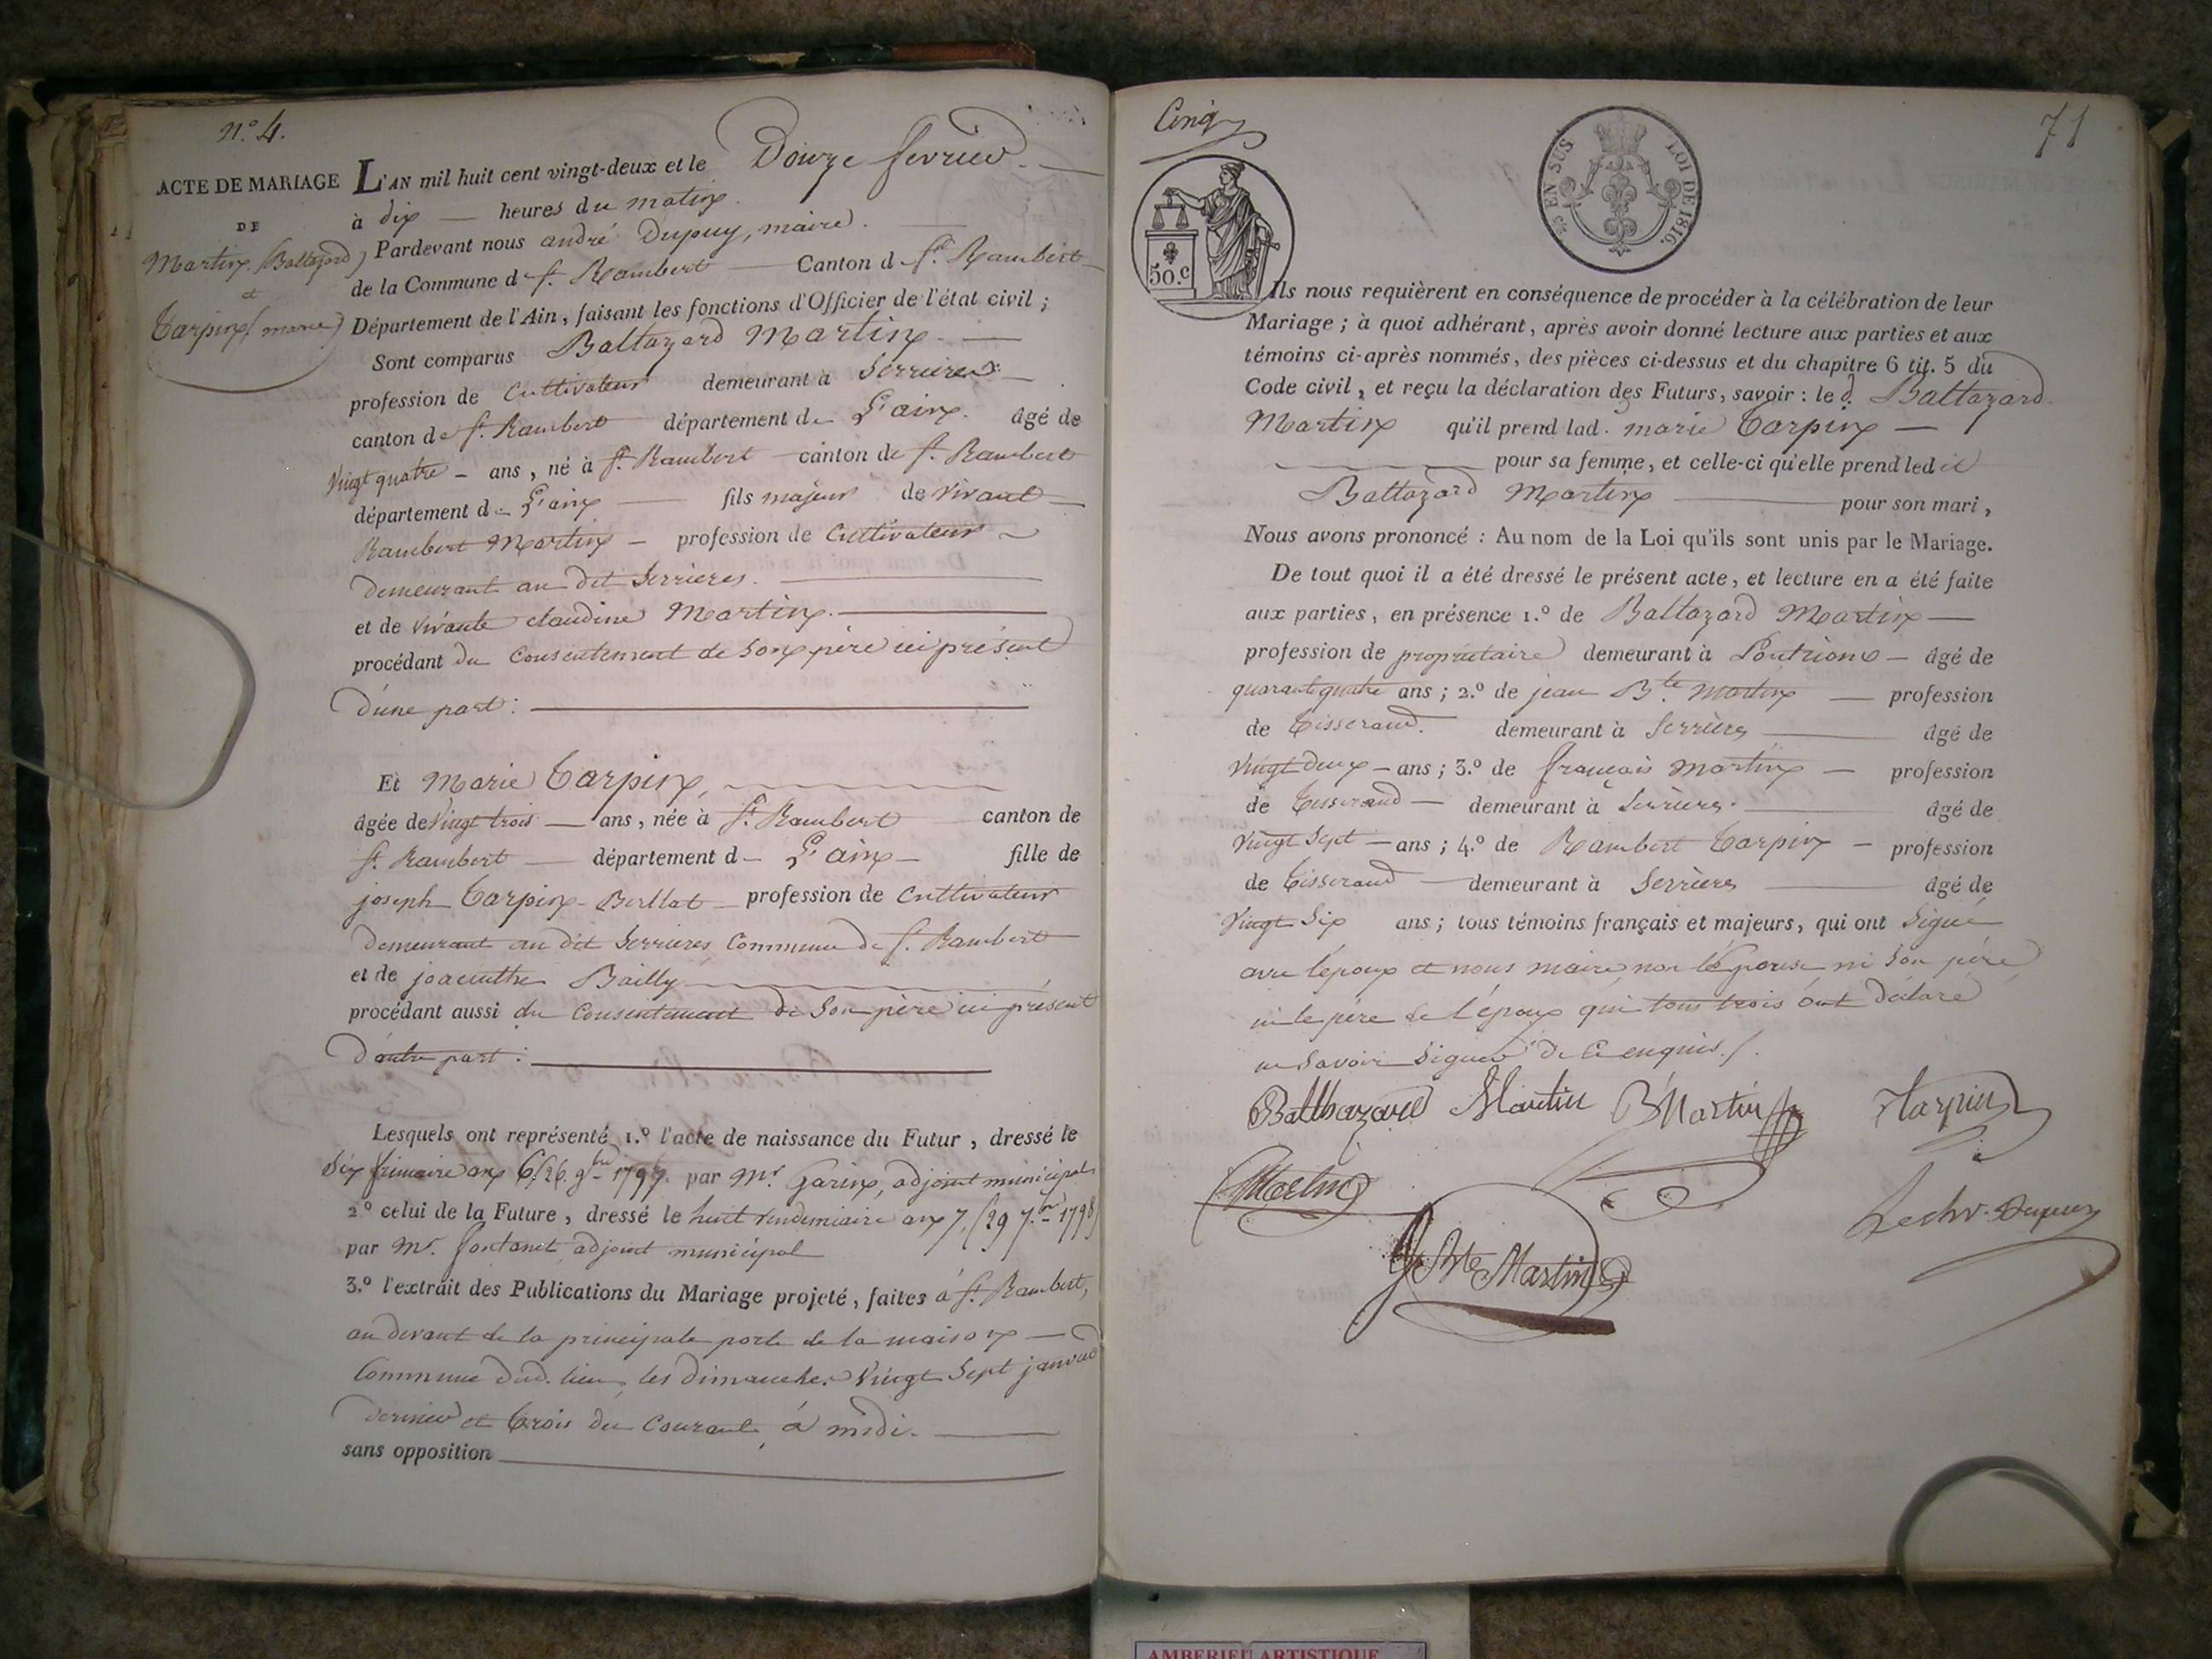 n.o 4.
ACTE DE MARIAGE
DE
Martin (Baltazard)
et
Tarpin (marie)
L'AN mil huit cent vingt-deux et le Douze fevrier
à dix heures du matin.
Pardevant nous andré Dupuy, maire
de la Commune de St. Rambert Canton de St. Rambert
Département de l'Ain, faisant les fonctions d'Officier de l'état civil ;
Sont comparus Baltazard Martin.
profession de Cultivateur demeurant à Serrieres
canton de St. Rambert département de L'ain. âgé de
Vingt quatre ans, né à St. Rambert canton de St. Rambert
département de L'ain fils majeur de vivant
Rambert Martin profession de Cultivateur
demeurant au dit Serrieres.
et de vivante claudine Martin.
procédant du Consentement de Son père ici présent
D'une part :
Et Marie Tarpin,
âgée de Vingt trois ans, née à St. Rambert canton de
St. Rambert département de L'ain fille de
joseph Tarpin-Berllat profession de Cultivateur
demeurant au dit Serrieres, Commune de St. Rambert
et de joacinthe Bailly
procédant aussi du Consentement de Son père ici présent
D'autre part :
Lesquels ont représenté, 1.o l'acte de naissance du Futur, dressé le
Six frimaire an 6. (26. 9bre 1797. par Mr. Garin, adjoint municipal
2.o celui de la Future, dressé le huit vendemiaire an 7, (29 7.bre 1798)
par Mr. fontanet, adjoint municipal
3.o l'extrait des Publications du Mariage projeté, faites à St. Rambert,
au devant de la principale porte de la maison
Commune dud. lieu, les dimanches Vingt Sept janvier
dernier et trois du Courant, à midi.
sans opposition
Cinq
71
50.c
EN SUS LOI DE 1816.
Ils nous requièrent en conséquence de procéder à la célébration de leur
Mariage ; à quoi adhérant, après avoir donné lecture aux parties et aux
témoins ci-après nommés, des pièces ci-dessus et du chapitre 6 tit. 5 du
Code civil, et reçu la déclaration des Futurs, savoir : le d. Baltazard
Martin qu'il prend lad. marie Tarpin
pour sa femme, et celle-ci qu'elle prend led it
Baltazard Martin pour son mari,
Nous avons prononcé : Au nom de la Loi qu'ils sont unis par le Mariage.
De tout quoi il a été dressé le présent acte, et lecture en a été faite
aux parties, en présence 1.o de Baltazard Martin
profession de propriétaire demeurant à âgé de
quarante quatre ans ; 2.o de jean Bte. Martin profession
de Tisserand. demeurant à Serrières âgé de
Vingt Deux ans ; 3.o de françois Martin profession
de Tisserand demeurant à Serrières. âgé de
Vingt Sept ans ; 4.o de Rambert Tarpin profession
de Tisserand demeurant à Serrières âgé de
Vingt Six ans ; tous témoins français et majeurs, qui ont Signé
avec l'époux et nous maire, non l'épouse ni Son père
ni le père de l'époux qui tous trois ont déclaré
ne Savoir Signer de ce enquis./.
Balthazard Martin BMartin Tarpin
Martin
Lechr. Dupuy
J Bte Martin
AMBERIEU ARTISTIQUE